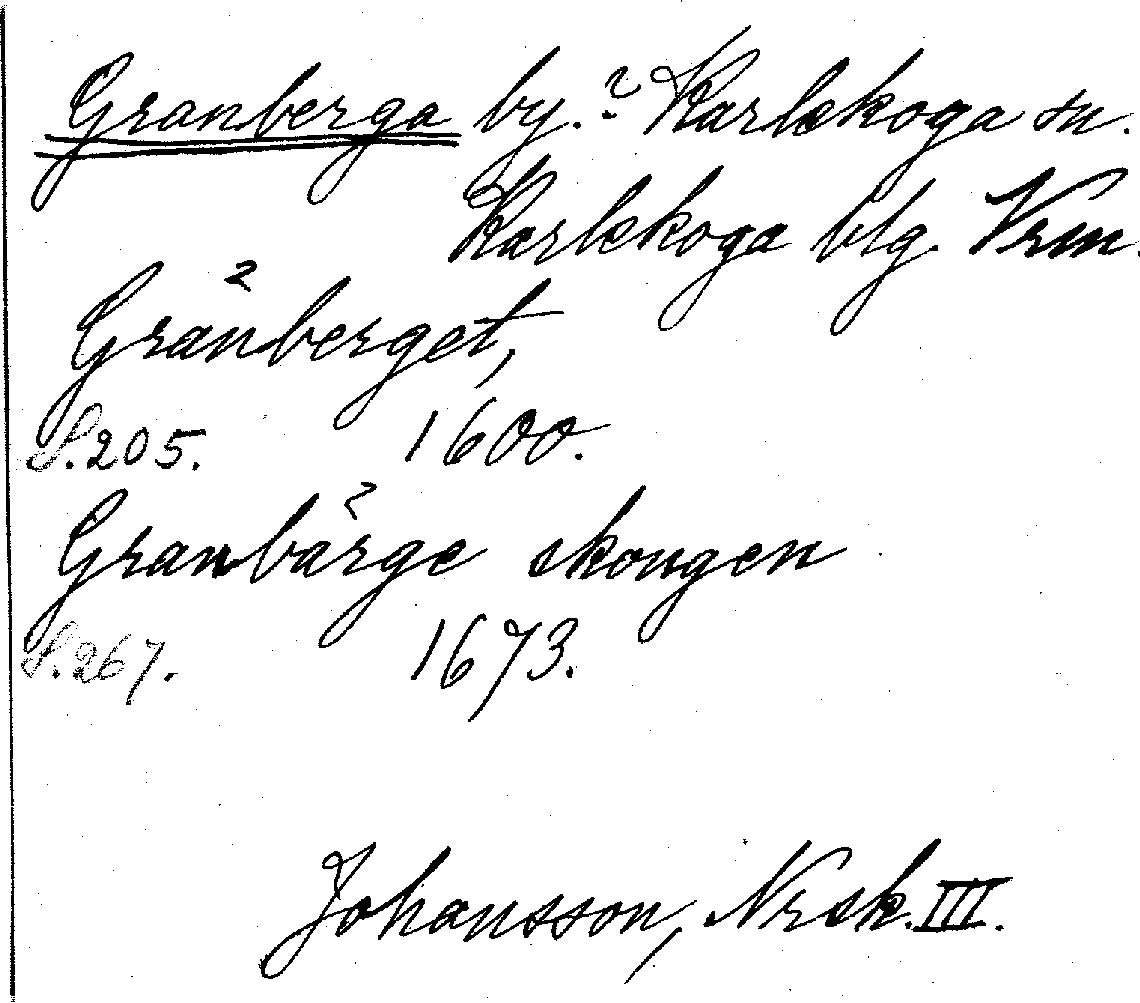 Granberga by. ? Karlskoga sn.
Karlskoga blg. Vrm.
Granberget,
S. 205. 1600.
Granbärge skougen
S. 267. 1673.
Johansson, Nrsk. III.